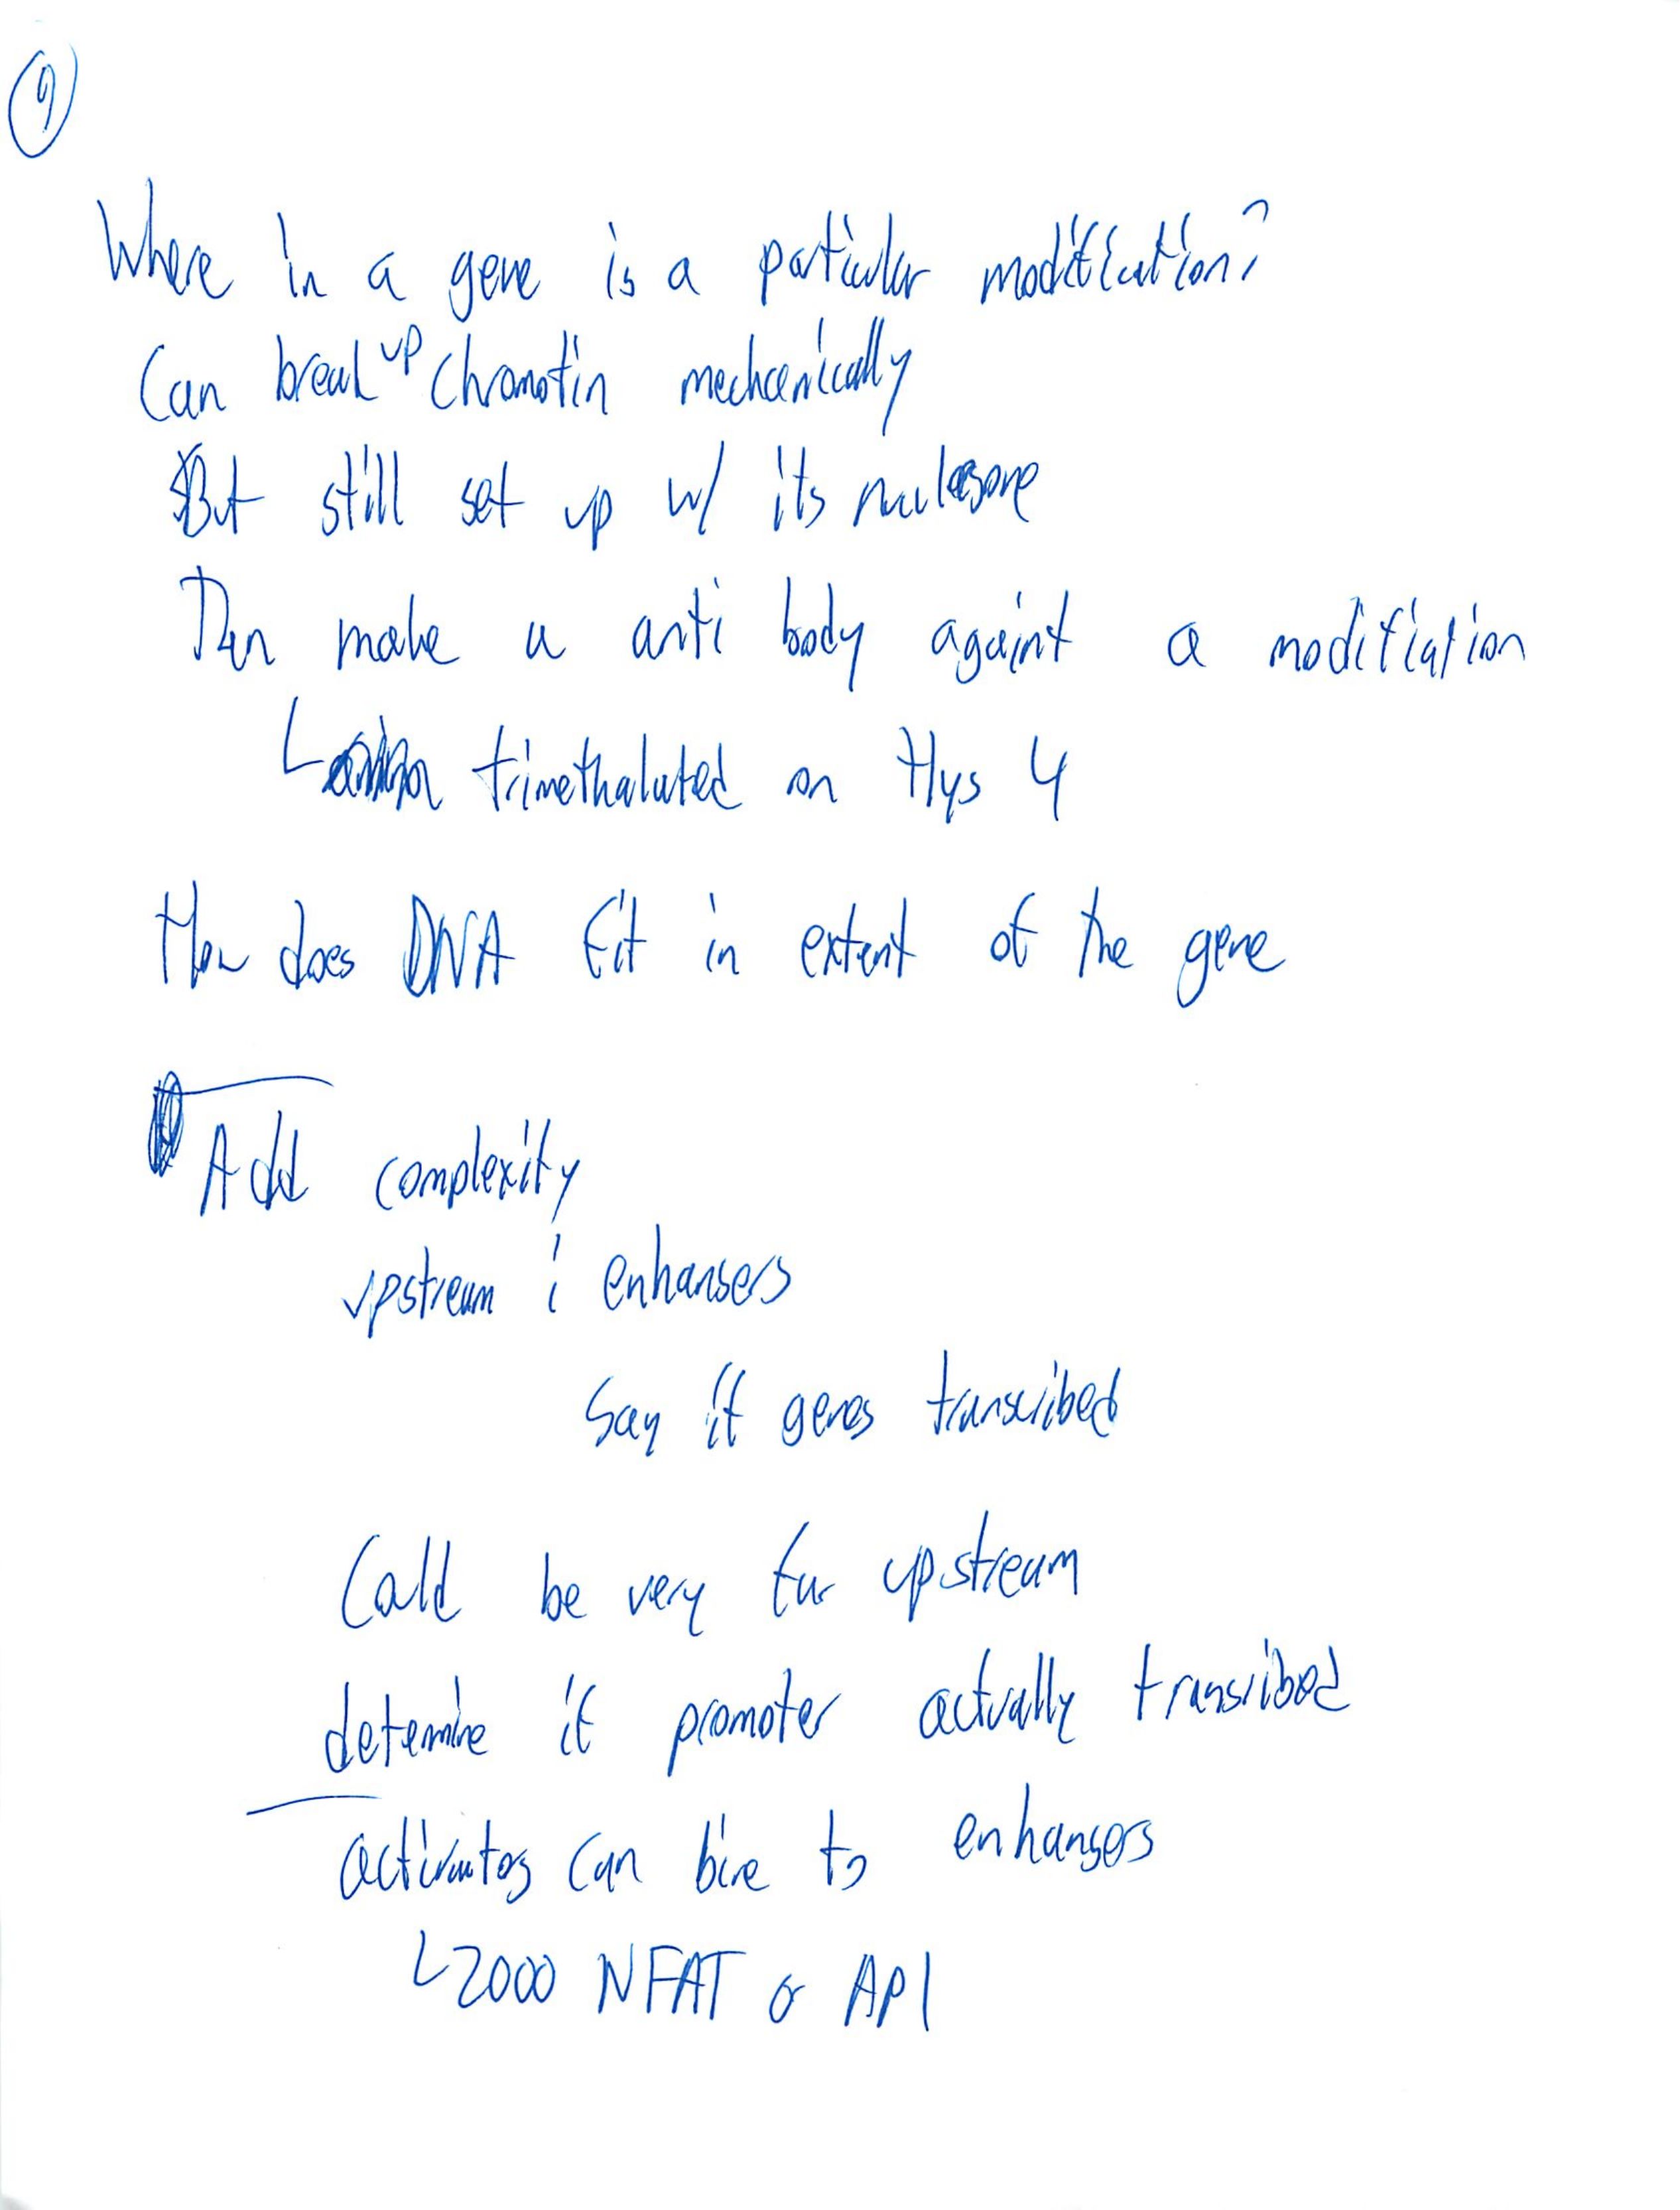 9
Where in a gene is a particular modification?
Can break up chromatin mechanically
But still set up w/ its
Then make a anti body againt a modifiation
trimethaluted on Hys 4
How does DNA fit in extent of the gene
Add complexity
upstream i enhansers
Say if genes transcribed
Could be very far upstream
determine if promoter actually transribed
activators can bire to enhansers
2000 NFAT or AP1